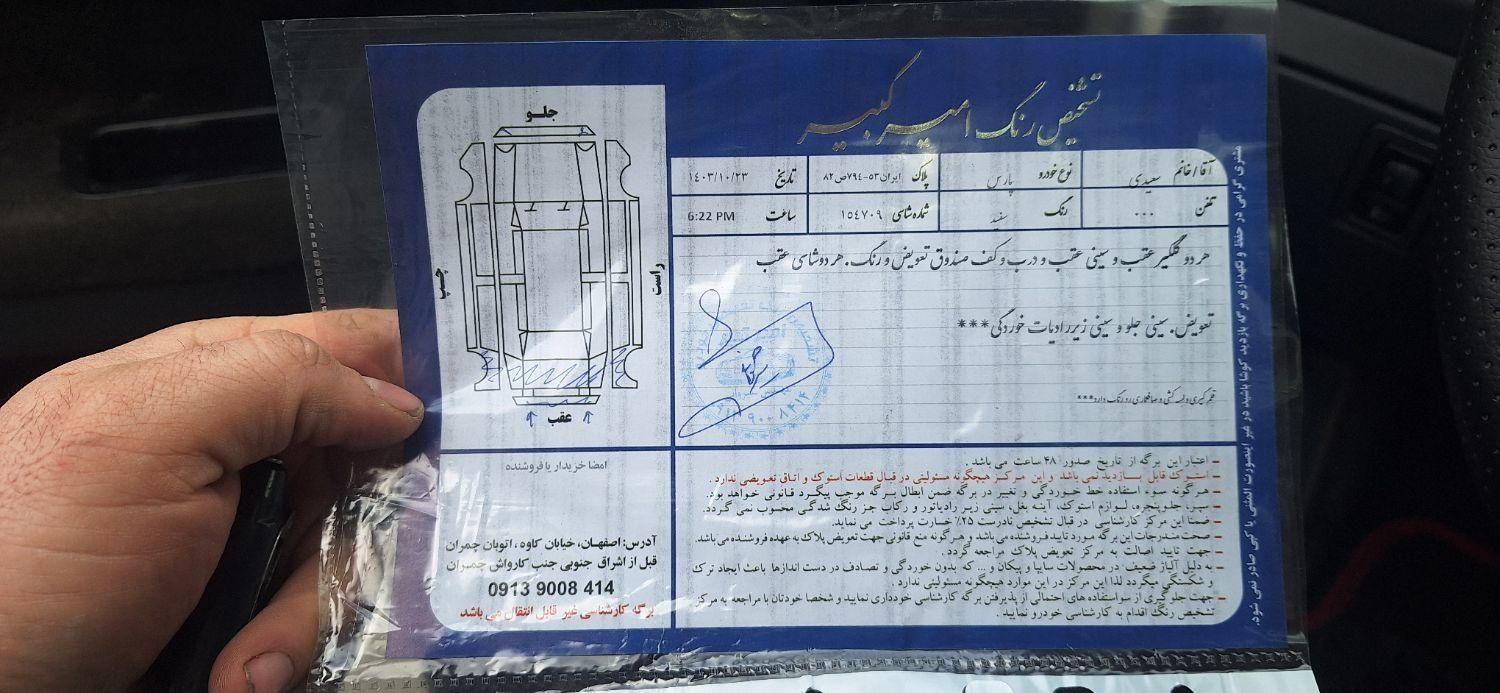 تشخیص رنگ امیر کبیر
آقا/خانم سعیدی
نوع خودرو پارس
پلاک ایران ۵۳-۷۹۴ص۸۲
تاریخ ۱۴۰۳/۱۰/۲۳
تلفن ...
رنگ سفید
شماره شاسی ۱۵٤۷۰۹
ساعت 6:22 PM
هر دو گلگیر عقب و سینی عقب و درب و کف صندوق تعویض و رنگ. هر دو شاسی عقب
تعویض. سینی جلو و سینی زیر رادیات خوردگی***
قلم گیری و لیسه کشی و صافکاری رو رنگ دارد***
جلو
چپ
راست
عقب
امضا خریدار یا فروشنده
آدرس: اصفهان، خیابان کاوه، اتوبان چمران
قبل از اشراق جنوبی جنب کارواش چمران
0913 9008 414
برگه کارشناسی غیر قابل انتقال می باشد
– اعتبار این برگه از تاریخ صدور ۴۸ ساعت می باشد .
– استوک قابل بازدید نمی باشد و این مرکز هیچگونه مسئولیتی در قبال قطعات استوک و اتاق تعویضی ندارد .
– هرگونه سوء استفاده خط خوردگی و تغییر در برگه ضمن ابطال برگه موجب پیگرد قانونی خواهد بود.
– سپر، جلوپنجره، لوازم استوک، آینه بغل، سینی زیر رادیاتور و رکاب جز رنگ شدگی محسوب نمی گردد.
– ضمنا این مرکز کارشناسی در قبال تشخیص نادرست ۲۵٪ خسارت پرداخت می نماید.
– صحت مندرجات این برگه مورد تایید فروشنده می باشد و هرگونه منع قانونی جهت تعویض پلاک به عهده فروشنده می باشد.
– جهت تایید اصالت به مرکز تعویض پلاک مراجعه گردد .
– به دلیل آلیاژ ضعیف در محصولات سایپا و پیکان و ... که بدون خوردگی و تصادف در دست اندازها باعث ایجاد ترک
و شکستگی میگردد لذا این مرکز در این موارد هیچگونه مسئولیتی ندارد .
– جهت جلوگیری از سواستفاده های احتمالی از پذیرفتن برگه کارشناسی خودداری نمایید و شخصا خودتان با مراجعه به مرکز
تشخیص رنگ اقدام به کارشناسی خودرو نمایید .
مشتری گرامی در حفظ و نگهداری برگه بازدید کوشا باشید در غیر اینصورت المثنی یا کپی صادر نمی شود.